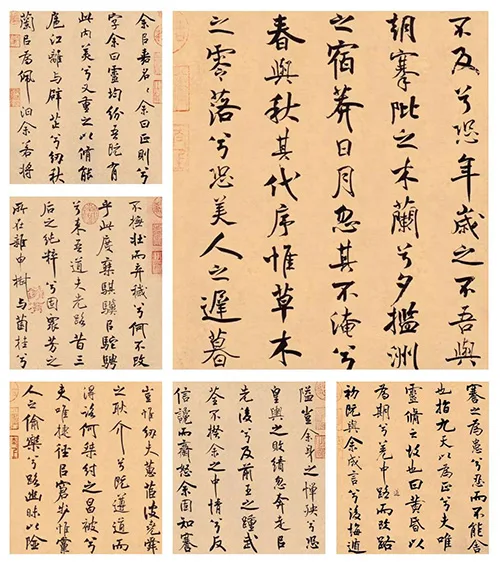 余㠯嘉名〻余曰正則兮
字余曰靈均紛吾既有
此內美兮又重之以脩能
扈江離与辟芷兮紉秋
蘭㠯為佩汩余若將
不及兮恐年歲之不吾與
朝搴阰之木蘭兮夕擥洲
之宿莽日月忽其不淹兮
春與秋其代序惟草木
之零落兮恐美人之遲暮
不撫壯而棄穢兮何不改
乎此度乘騏驥㠯馳騁
兮來吾道夫先路昔三
后之純粹兮固眾芳之
所在雜申椒与菌桂兮
豈惟紉夫蕙茝彼堯舜
之耿介兮既遵道而
得路何桀紂之昌被兮
夫唯捷徑㠯窘步惟黨
人之偷樂兮路幽昧以險
隘豈余身之憚殃兮恐
皇輿之敗績忽奔走㠯
先後兮及前王之踵武
荃不揆余之中情兮反
信讒而齌怒余固知謇
謇之為患兮忍而不能舍
也指九天以為正兮夫唯
靈脩之故也曰黃昏以
為期兮羌中路而改路
初既與余成言兮後悔遁